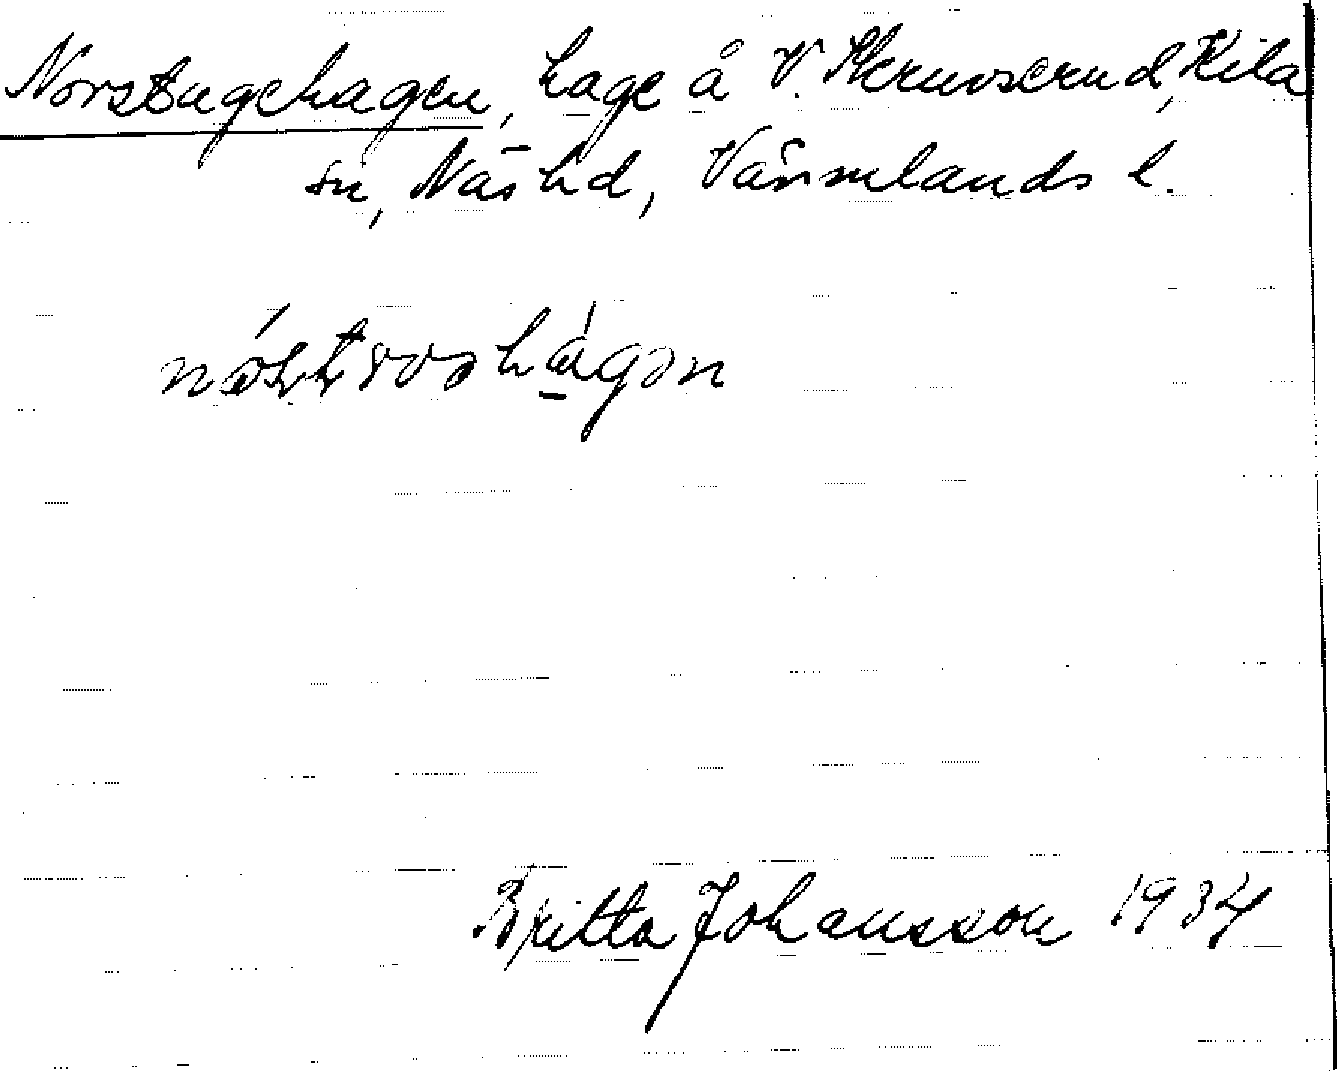 Norstugehagen, hage å V. Skruvserud, Kila
sn, Näs hd, Värmlands l.
Britta Johansson 1934